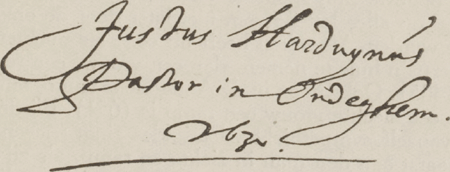 Justus Harduynus
Pastor in Oudeghem.
1630.